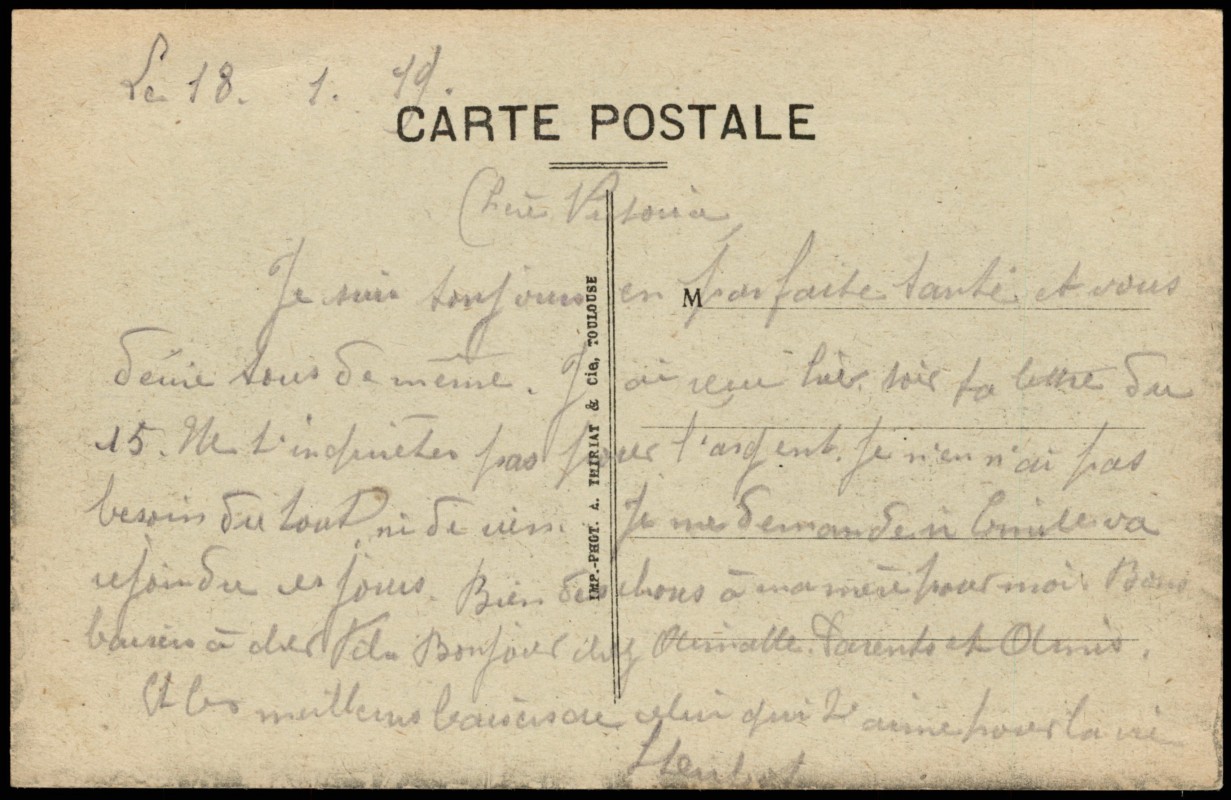 Le 18. 1. 19.
CARTE POSTALE
Chère Victoria
Je suis toujours en parfaite santé et vous
M
désire tous de même. J'ai reçu hier soir ta lettre du
15. Ne t'inquiètes pas pour l'argent. Je n'en n'ai pas
besoin du tout, ni de rien. Je me demande si Emile va
rejoindre ces jours. Bien des choses à ma mère pour moi. Bons
baisers à cher Bonjour chez Parents et Amis.
Et les meilleurs baisers de celui qui t'aime pour la vie
IMP.-PHOT. A. THIRIAT & Cie, TOULOUSE